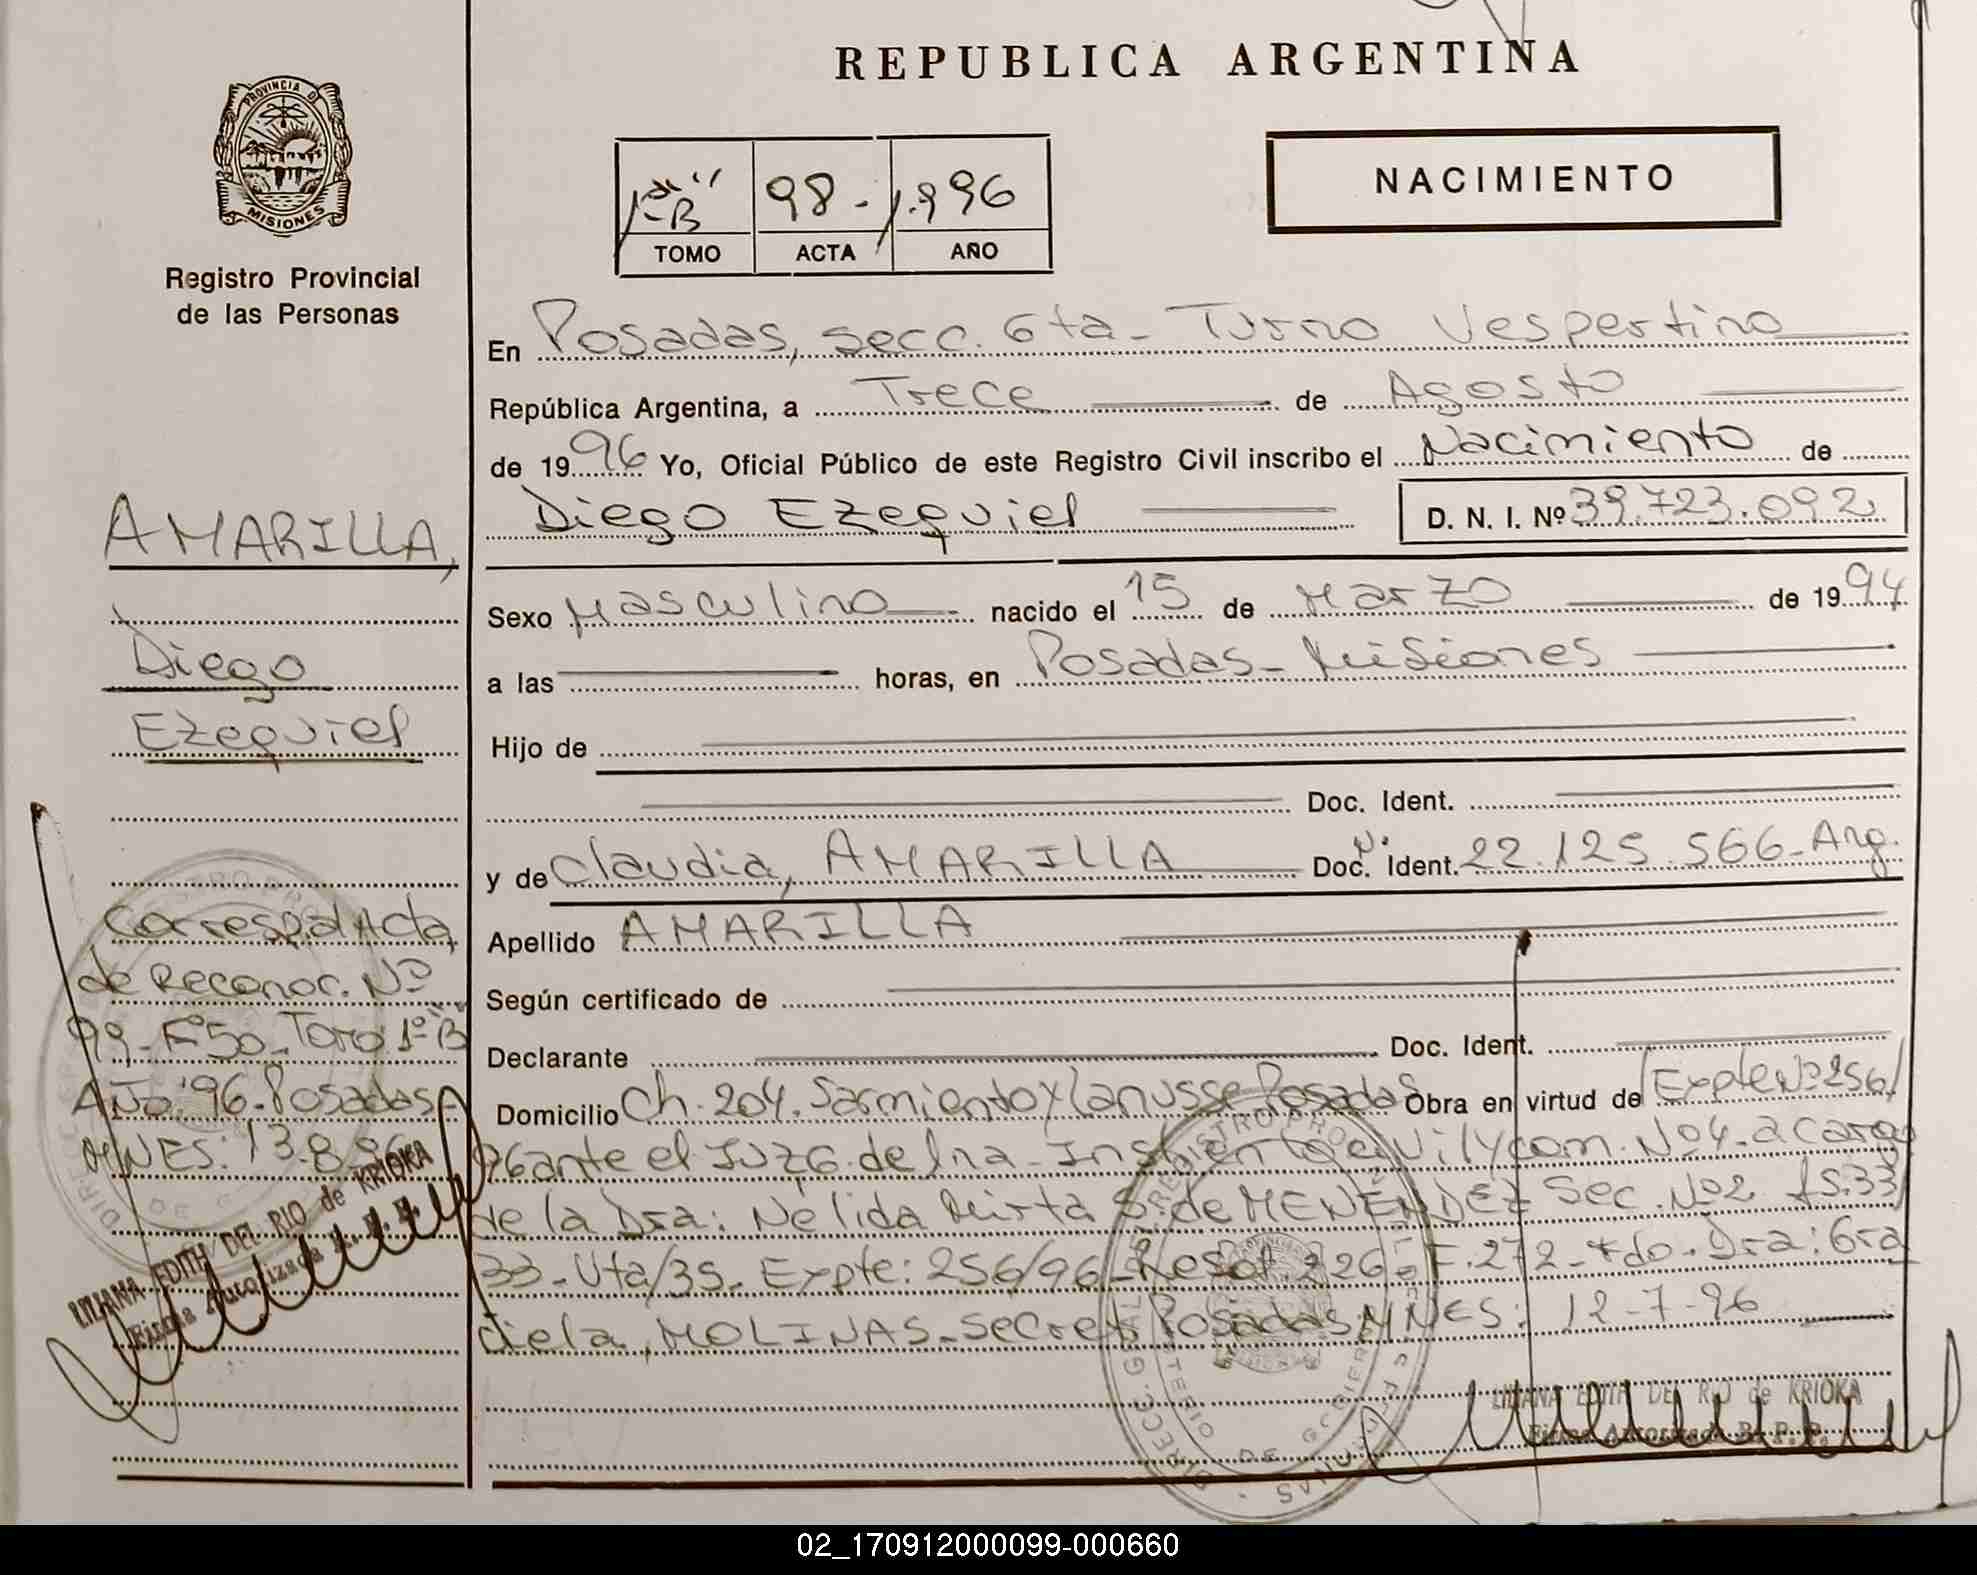 REPUBLICA ARGENTINA
PROVINCIA DE
MISIONES
Registro Provincial
de las Personas
1º "B" 98.- 1.996
TOMO ACTA AÑO
NACIMIENTO
AMARILLA,
Diego
Ezequiel
Corresp al Acta
de Reconoc. Nº
99- Fº50- Tomo 1º "B"
Año '96- Posadas-
MNES: 13.8.96
LILIANA EDITH DEL RIO de KRIOKA
Firma Autorizada R. P. P.
En Posadas, secc. 6ta- Turno Vespertino
República Argentina, a Trece de Agosto
de 1996 Yo, Oficial Público de este Registro Civil inscribo el Nacimiento de
Diego Ezequiel D. N. I. Nº 39.723.092
Sexo Masculino nacido el 15 de Marzo de 1994
a las horas, en Posadas- Misiones
Hijo de
Doc. Ident.
y de Claudia, AMARILLA Doc. Ident. Nº 22.125.566- Arg.
Apellido AMARILLA
Según certificado de
Declarante Doc. Ident.
Domicilio Ch. 204. Sarmiento y Lanusse Posadas Obra en virtud de Expte Nº 256/
96 ante el Juzg. de 1ra- Inst en lo Civil y Com. Nº4- a cargo
de la Dra: Nélida Mirta S. de MENENDEZ Sec. Nº2 fs. 33/
33- Vta/35- Expte: 256/96- Resol. 226- F. 272- fdo. Dra: Gra
ciela, MOLINAS- Secret Posadas MNES: 12-7-96
LILIANA EDITH DEL RIO de KRIOKA
Firma Autorizada R. P. P.
02_170912000099-000660